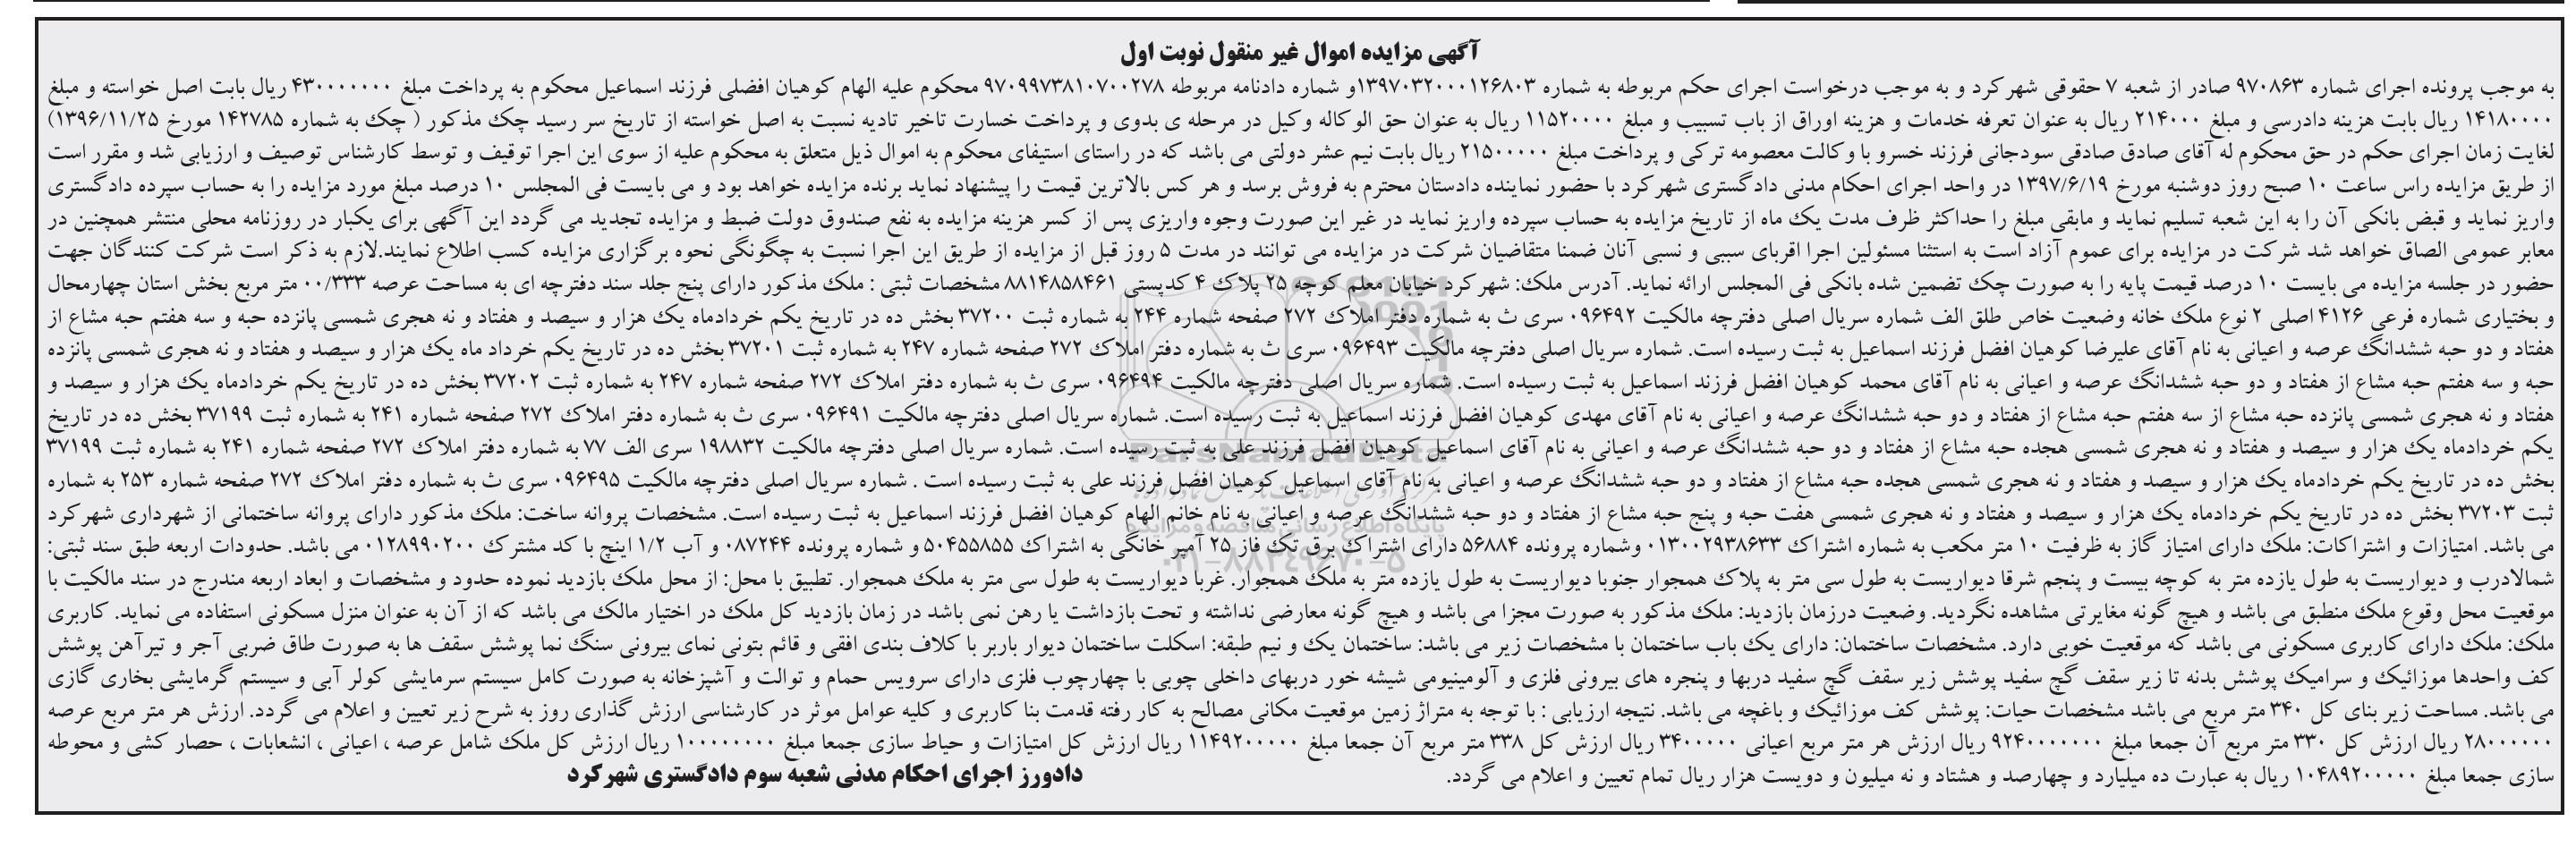 آگهی مزایده اموال غیر منقول نوبت اول
به موجب پرونده اجرای شماره ۹۷۰۸۶۳ صادر از شعبه ۷ حقوقی شهرکرد و به موجب درخواست اجرای حکم مربوطه به شماره ۱۳۹۷۰۳۲۰۰۰۱۲۶۸۰۳و شماره دادنامه مربوطه ۹۷۰۹۹۷۳۸۱۰۷۰۰۲۷۸ محکوم علیه الهام کوهیان افضلی فرزند اسماعیل محکوم به پرداخت مبلغ ۴۳۰۰۰۰۰۰۰ ریال بابت اصل خواسته و مبلغ
۱۴۱۸۰۰۰۰ ریال بابت هزینه دادرسی و مبلغ ۲۱۴۰۰۰ ریال به عنوان تعرفه خدمات و هزینه اوراق از باب تسبیب و مبلغ ۱۱۵۲۰۰۰۰ ریال به عنوان حق الوکاله وکیل در مرحله ی بدوی و پرداخت خسارت تاخیر تادیه نسبت به اصل خواسته از تاریخ سر رسید چک مذکور ( چک به شماره ۱۴۲۷۸۵ مورخ ۱۳۹۶/۱۱/۲۵)
لغایت زمان اجرای حکم در حق محکوم له آقای صادق صادقی سودجانی فرزند خسرو با وکالت معصومه ترکی و پرداخت مبلغ ۲۱۵۰۰۰۰۰ ریال بابت نیم عشر دولتی می باشد که در راستای استیفای محکوم به اموال ذیل متعلق به محکوم علیه از سوی این اجرا توقیف و توسط کارشناس توصیف و ارزیابی شد و مقرر است
از طریق مزایده راس ساعت ۱۰ صبح روز دوشنبه مورخ ۱۳۹۷/۶/۱۹ در واحد اجرای احکام مدنی دادگستری شهرکرد با حضور نماینده دادستان محترم به فروش برسد و هر کس بالاترین قیمت را پیشنهاد نماید برنده مزایده خواهد بود و می بایست فی المجلس ۱۰ درصد مبلغ مورد مزایده را به حساب سپرده دادگستری
واریز نماید و قبض بانکی آن را به این شعبه تسلیم نماید و مابقی مبلغ را حداکثر ظرف مدت یک ماه از تاریخ مزایده به حساب سپرده واریز نماید در غیر این صورت وجوه واریزی پس از کسر هزینه مزایده به نفع صندوق دولت ضبط و مزایده تجدید می گردد این آگهی برای یکبار در روزنامه محلی منتشر همچنین در
معابر عمومی الصاق خواهد شد شرکت در مزایده برای عموم آزاد است به استثنا مسئولین اجرا اقربای سببی و نسبی آنان ضمنا متقاضیان شرکت در مزایده می توانند در مدت ۵ روز قبل از مزایده از طریق این اجرا نسبت به چگونگی نحوه برگزاری مزایده کسب اطلاع نمایند.لازم به ذکر است شرکت کنندگان جهت
حضور در جلسه مزایده می بایست ۱۰ درصد قیمت پایه را به صورت چک تضمین شده بانکی فی المجلس ارائه نماید. آدرس ملک: شهرکرد خیابان معلم کوچه ۲۵ پلاک ۴ کدپستی ۸۸۱۴۸۵۸۴۶۱ مشخصات ثبتی : ملک مذکور دارای پنج جلد سند دفترچه ای به مساحت عرصه ۰۰/۳۳۳ متر مربع بخش استان چهارمحال
و بختیاری شماره فرعی ۴۱۲۶ اصلی ۲ نوع ملک خانه وضعیت خاص طلق الف شماره سریال اصلی دفترچه مالکیت ۰۹۶۴۹۲ سری ث به شماره دفتر املاک ۲۷۲ صفحه شماره ۲۴۴ به شماره ثبت ۳۷۲۰۰ بخش ده در تاریخ یکم خردادماه یک هزار و سیصد و هفتاد و نه هجری شمسی پانزده حبه و سه هفتم حبه مشاع از
هفتاد و دو حبه ششدانگ عرصه و اعیانی به نام آقای علیرضا کوهیان افضل فرزند اسماعیل به ثبت رسیده است. شماره سریال اصلی دفترچه مالکیت ۰۹۶۴۹۳ سری ث به شماره دفتر املاک ۲۷۲ صفحه شماره ۲۴۷ به شماره ثبت ۳۷۲۰۱ بخش ده در تاریخ یکم خرداد ماه یک هزار و سیصد و هفتاد و نه هجری شمسی پانزده
حبه و سه هفتم حبه مشاع از هفتاد و دو حبه ششدانگ عرصه و اعیانی به نام آقای محمد کوهیان افضل فرزند اسماعیل به ثبت رسیده است. شماره سریال اصلی دفترچه مالکیت ۰۹۶۴۹۴ سری ث به شماره دفتر املاک ۲۷۲ صفحه شماره ۲۴۷ به شماره ثبت ۳۷۲۰۲ بخش ده در تاریخ یکم خردادماه یک هزار و سیصد و
هفتاد و نه هجری شمسی پانزده حبه مشاع از سه هفتم حبه مشاع از هفتاد و دو حبه ششدانگ عرصه و اعیانی به نام آقای مهدی کوهیان افضل فرزند اسماعیل به ثبت رسیده است. شماره سریال اصلی دفترچه مالکیت ۰۹۶۴۹۱ سری ث به شماره دفتر املاک ۲۷۲ صفحه شماره ۲۴۱ به شماره ثبت ۳۷۱۹۹ بخش ده در تاریخ
یکم خردادماه یک هزار و سیصد و هفتاد و نه هجری شمسی هجده حبه مشاع از هفتاد و دو حبه ششدانگ عرصه و اعیانی به نام آقای اسماعیل کوهیان افضل فرزند علی به ثبت رسیده است. شماره سریال اصلی دفترچه مالکیت ۱۹۸۸۳۲ سری الف ۷۷ به شماره دفتر املاک ۲۷۲ صفحه شماره ۲۴۱ به شماره ثبت ۳۷۱۹۹
بخش ده در تاریخ یکم خردادماه یک هزار و سیصد و هفتاد و نه هجری شمسی هجده حبه مشاع از هفتاد و دو حبه ششدانگ عرصه و اعیانی به نام آقای اسماعیل کوهیان افضل فرزند علی به ثبت رسیده است . شماره سریال اصلی دفترچه مالکیت ۰۹۶۴۹۵ سری ث به شماره دفتر املاک ۲۷۲ صفحه شماره ۲۵۳ به شماره
ثبت ۳۷۲۰۳ بخش ده در تاریخ یکم خردادماه یک هزار و سیصد و هفتاد و نه هجری شمسی هفت حبه و پنج حبه مشاع از هفتاد و دو حبه ششدانگ عرصه و اعیانی به نام خانم الهام کوهیان افضل فرزند اسماعیل به ثبت رسیده است. مشخصات پروانه ساخت: ملک مذکور دارای پروانه ساختمانی از شهرداری شهرکرد
می باشد. امتیازات و اشتراکات: ملک دارای امتیاز گاز به ظرفیت ۱۰ متر مکعب به شماره اشتراک ۰۱۳۰۰۲۹۳۸۶۳۳ وشماره پرونده ۵۶۸۸۴ دارای اشتراک برق تک فاز ۲۵ آمپر خانگی به اشتراک ۵۰۴۵۵۸۵۵ و شماره پرونده ۰۸۷۲۴۴ و آب ۱/۲ اینچ با کد مشترک ۰۱۲۸۹۹۰۲۰۰ می باشد. حدودات اربعه طبق سند ثبتی:
شمالادرب و دیواریست به طول یازده متر به کوچه بیست و پنجم شرقا دیواریست به طول سی متر به پلاک همجوار جنوبا دیواریست به طول یازده متر به ملک همجوار. غربا دیواریست به طول سی متر به ملک همجوار. تطبیق با محل: از محل ملک بازدید نموده حدود و مشخصات و ابعاد اربعه مندرج در سند مالکیت با
موقعیت محل وقوع ملک منطبق می باشد و هیچ گونه مغایرتی مشاهده نگردید. وضعیت درزمان بازدید: ملک مذکور به صورت مجزا می باشد و هیچ گونه معارضی نداشته و تحت بازداشت یا رهن نمی باشد در زمان بازدید کل ملک در اختیار مالک می باشد که از آن به عنوان منزل مسکونی استفاده می نماید. کاربری
ملک: ملک دارای کاربری مسکونی می باشد که موقعیت خوبی دارد. مشخصات ساختمان: دارای یک باب ساختمان با مشخصات زیر می باشد: ساختمان یک و نیم طبقه: اسکلت ساختمان دیوار باربر با کلاف بندی افقی و قائم بتونی نمای بیرونی سنگ نما پوشش سقف ها به صورت طاق ضربی آجر و تیرآهن پوشش
کف واحدها موزائیک و سرامیک پوشش بدنه تا زیر سقف گچ سفید پوشش زیر سقف گچ سفید دربها و پنجره های بیرونی فلزی و آلومینیومی شیشه خور دربهای داخلی چوبی با چهارچوب فلزی دارای سرویس حمام و توالت و آشپزخانه به صورت کامل سیستم سرمایشی کولر آبی و سیستم گرمایشی بخاری گازی
می باشد. مساحت زیر بنای کل ۳۴۰ متر مربع می باشد مشخصات حیات: پوشش کف موزائیک و باغچه می باشد. نتیجه ارزیابی : با توجه به متراژ زمین موقعیت مکانی مصالح به کار رفته قدمت بنا کاربری و کلیه عوامل موثر در کارشناسی ارزش گذاری روز به شرح زیر تعیین و اعلام می گردد. ارزش هر متر مربع عرصه
۲۸۰۰۰۰۰۰ ریال ارزش کل ۳۳۰ متر مربع آن جمعا مبلغ ۹۲۴۰۰۰۰۰۰۰ ریال ارزش هر متر مربع اعیانی ۳۴۰۰۰۰۰ ریال ارزش کل ۳۳۸ متر مربع آن جمعا مبلغ ۱۱۴۹۲۰۰۰۰۰ ریال ارزش کل امتیازات و حیاط سازی جمعا مبلغ ۱۰۰۰۰۰۰۰۰ ریال ارزش کل ملک شامل عرصه ، اعیانی ، انشعابات ، حصار کشی و محوطه
سازی جمعا مبلغ ۱۰۴۸۹۲۰۰۰۰۰ ریال به عبارت ده میلیارد و چهارصد و هشتاد و نه میلیون و دویست هزار ریال تمام تعیین و اعلام می گردد.
دادورز اجرای احکام مدنی شعبه سوم دادگستری شهرکرد
ParsNamadData
پایگاه اطلاع رسانی مناقصه و مزایده
۰۲۱-۸۸۳۴۹۶۷۰-۵